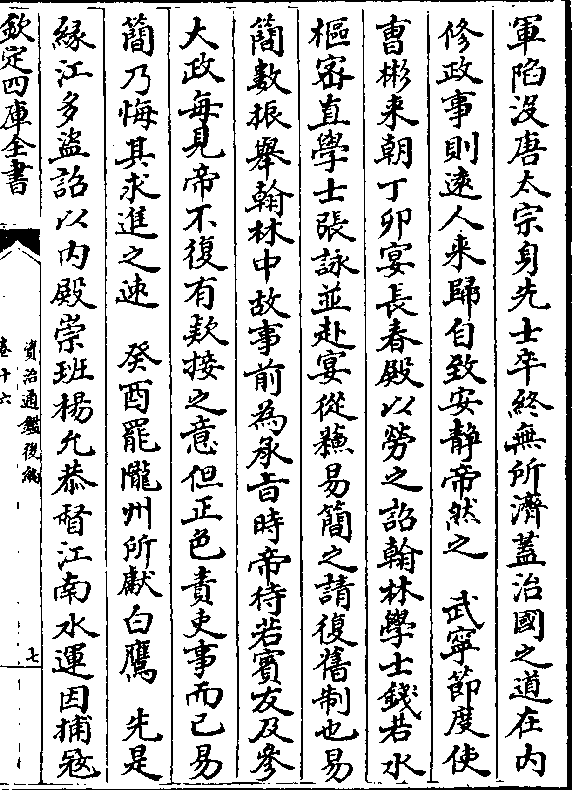 軍陷没唐太宗身先士卒終無所濟葢治國之道在内
修政事則逺人来歸自致安静帝然之　武寧節度使
曹彬来朝丁卯宴長春殿以勞之詔翰林學士錢若水
樞密直學士張詠並赴宴從蘇易簡之請復舊制也易
簡數振舉翰林中故事前為承旨時帝待若賓友及參
大政每見帝不復有款接之意但正色責吏事而已易
簡乃悔其求進之速　癸酉罷隴州所獻白鷹　先是
縁江多盜詔以内殿崇班楊允恭督江南水運因捕冦
欽定四庫全書
資治通鑑後編
卷十六
七